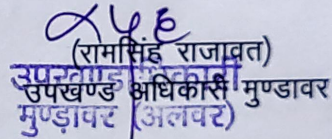 (रामसिंह राजावत)
उपखण्ड अधिकारी
उपखण्ड अधिकारी मुण्डावर
मुण्डावर (अलवर)